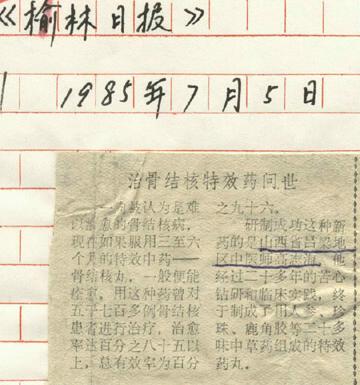 《榆林日报》
1985年7月5日
治骨结核特效药问世
被认为是难
以治愈的骨结核病，
现在如果服用三至六
个月的特效中药——
骨结核丸，一般便能
痊愈，用这种药曾对
五千七百多例骨结核
患者进行治疗，治愈
率达百分之八十五以
上，总有效率为百分
之九十六。
研制成功这种新
药的是山西省吕梁地
区中医师高志海，他
经过二十多年的苦心
钻研和临床实践，终
于制成了用人参、珍
珠、鹿角胶等二十多
味中草药组成的特效
药丸。